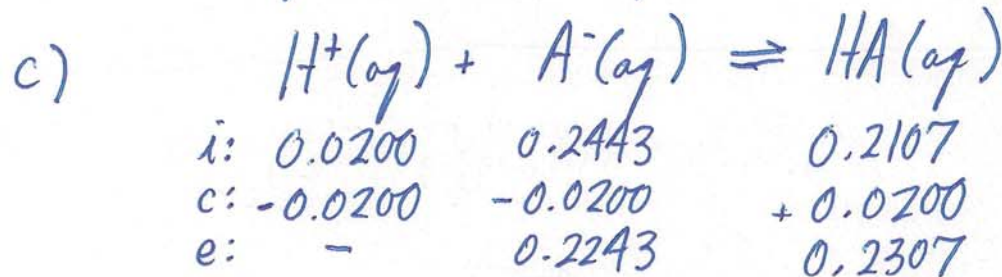 c) H⁺(aq) + A⁻(aq) ⇌ HA(aq)
i: 0.0200 0.2443 0.2107
c: -0.0200 -0.0200 +0.0200
e: - 0.2243 0.2307